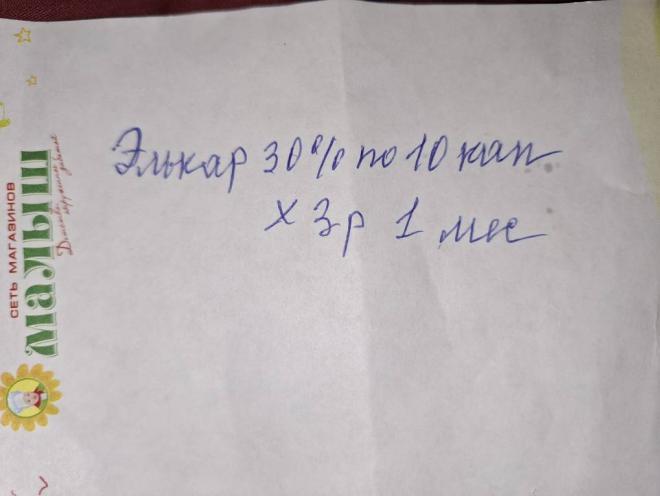 Элькар 30% по 10 кап
х 3 р 1 мес
СЕТЬ МАГАЗИНОВ
малыш